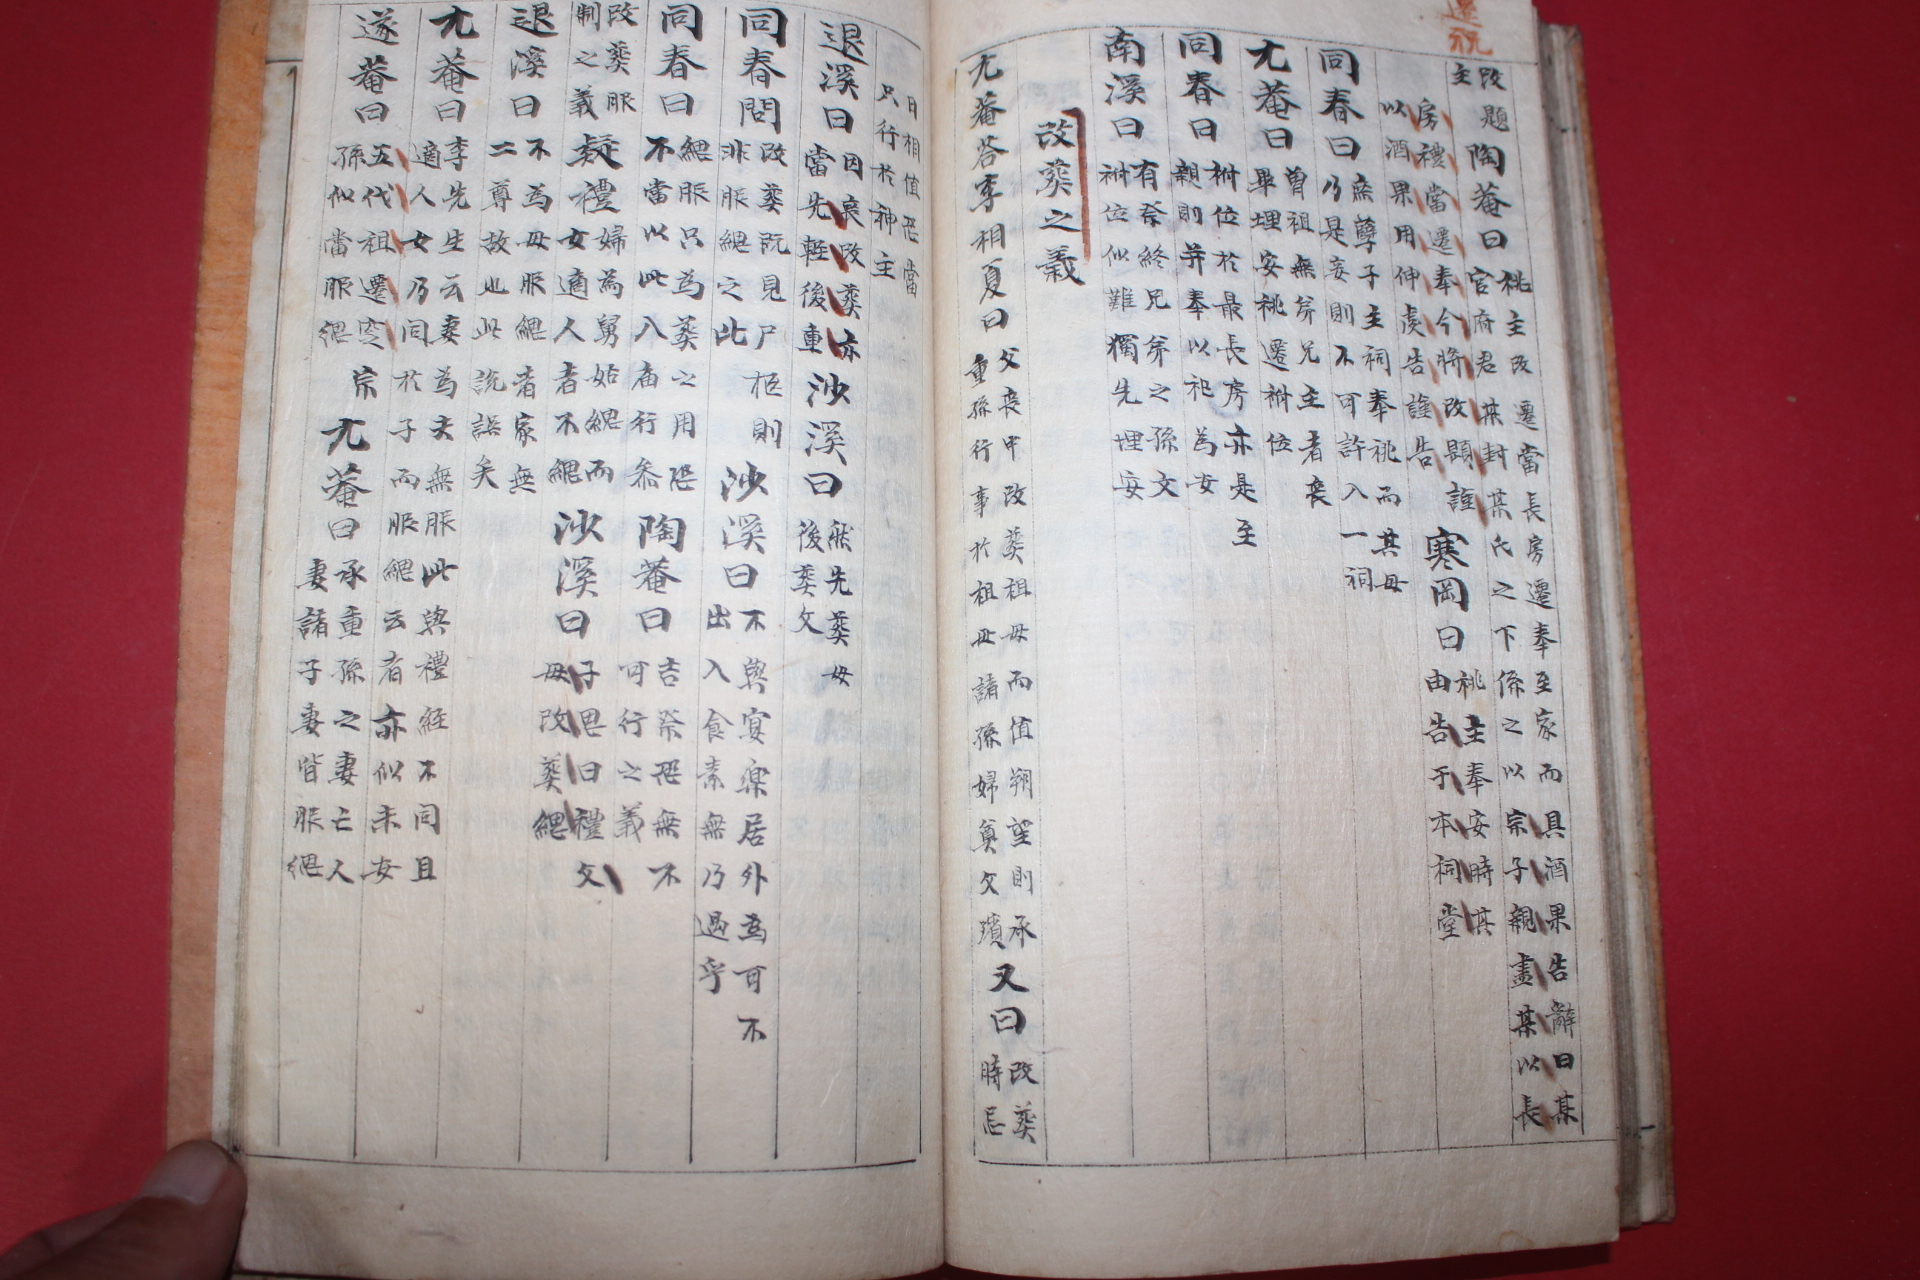 遷祝
改題主 陶菴曰 祧主改遷當長房遷奉至家而具酒果告辭曰某
官府君某封某氏之下係之以宗子親盡某以長
房禮當遷奉今將改題謹
以酒果用伸虔告謹告 寒岡曰 祧主奉安時其
由告于本祠堂
同春曰 庶孽子主祠奉祧而其母
乃是妾則不可許入一祠
尤菴曰 曾祖無弟兄主者喪
畢埋安祧遷祔位
同春曰 祔位於最長房亦是至
親則并奉以祀為安
南溪曰 有奈終兄弟之孫文
祔位似難獨先埋安
改葬之義
尤菴答李相夏曰 父喪中改葬祖母而值朔望則承
重孫行事於祖母諸孫婦奠父殯 又曰 改葬
時忌
日相值恐當
只行於神主
退溪曰 因喪改葬亦
當先輕後重 沙溪曰 然先葬母
後葬父
同春問 改葬既見尸柩則
非服緦之比 沙溪曰 不與宴樂居外為可不
出入食素無乃過乎
同春曰 緦服只為葬之用恐
不當以此入廟行祭 陶菴曰 吉祭恐無不
可行之義
改葬服
制之義 疑禮 婦為舅姑緦而
女適人者不緦 沙溪曰 子思曰禮父
母改葬緦
退溪曰 不為母服緦者家無
二尊故也此說誤矣
尤菴曰 李先生云妻為夫無服此與禮經不同且
適人女乃同於子而服緦云者亦似未安
遂菴曰 五代祖遷窆宗
孫似當服緦 尤菴曰 承重孫之妻亡人
妻諸子妻皆服緦